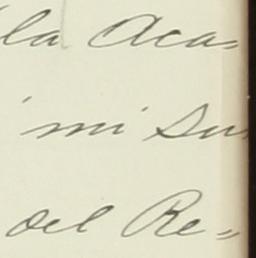 la Aca=
mi su
del Re=